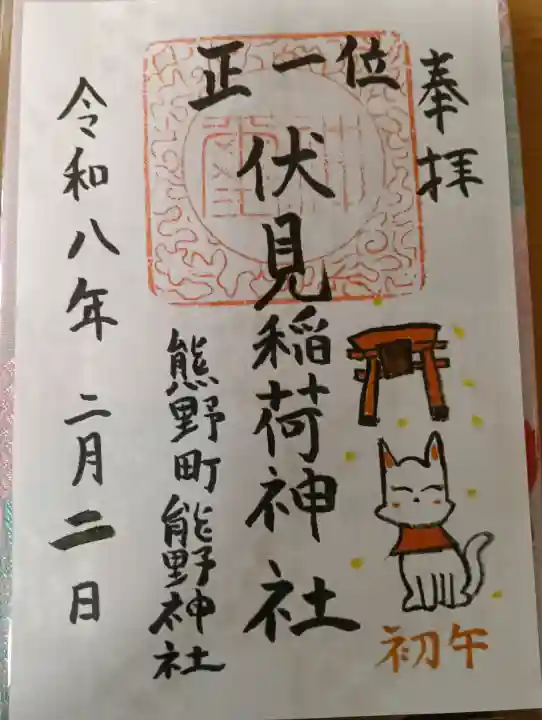 奉拝
正一位
伏見稲荷神社
熊野町熊野神社
令和八年 二月二日
初午